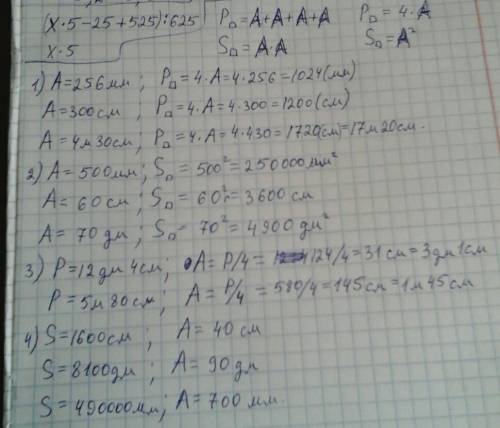 (x·5-25+525):625
x·5
P□=A+A+A+A
S□=A·A
P□=4·A
S□=A²
1) A=256мм; P□=4·A=4·256=1024(мм)
A=300см; P□=4·A=4·300=1200(см)
A=4м30см; P□=4·A=4·430=1720(см)=17м20см.
2) A=500мм; S□=500²=250000мм²
A=60см; S□=60²=3600см
A=70дм; S□=70²=4900дм²
3) P=12дм 4см; A=P/4=124/4=31см=3дм1см
P=5м80см; A=P/4=580/4=145см=1м45см
4) S=1600см; A=40см
S=8100дм; A=90дм
S=490000мм; A=700мм.